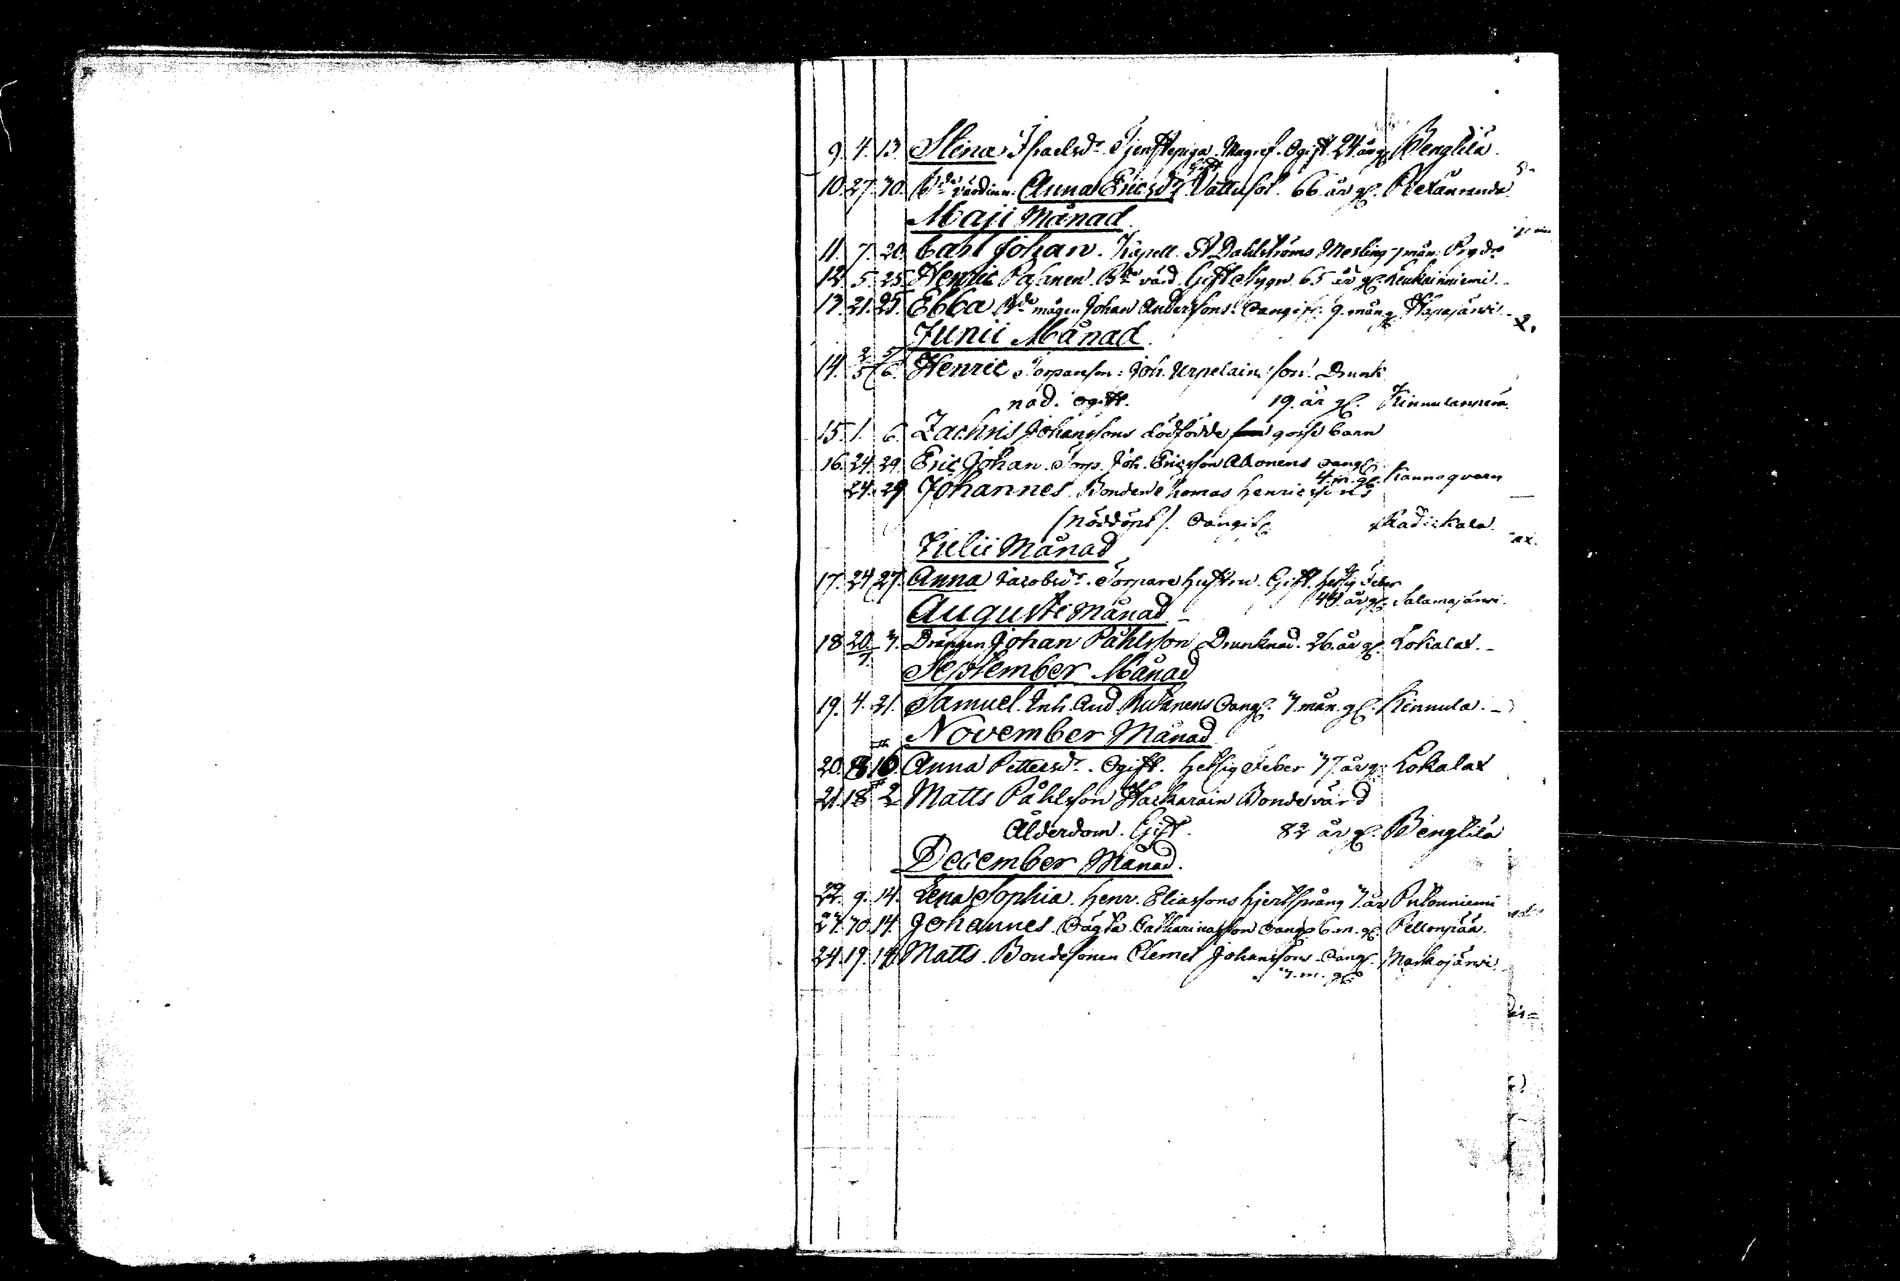 9. 4. 13. Stina Israelsdr. Tjenstepiga. Magref. Ogift 24 år gl. Bengtilä.
10. 27. 30. Bde värdinn. Anna Ericsdr Gift Vattusot. 66. år gl.
Maji Månad
11. 7. 20. Carl Johan. Kapell. Dahlströms Mesling 7 mån.
12. 5. 25. Henric Pasanen. Bde värd. Gift Stygn 65 år gl. Keukainniemi.
13. 21. 25. Ebba Bde mågen Johan Anderssons. Oangif. 9. mån gl.
Junii Månad.
14. Henric Torpareson: Joh. Urpelain: son. Drunk
nad. ogift. 19. år gl. Kinnulanniemi
15. 1. 6. Zachris Johanssons dödfödde gosse barn
16. 24. 29. Eric Johan. Torp. Joh. Ericsson Ahonens oangl.
4. m. gl. Kannoqvarn
24. 29. Johannes. Bonden Thomas Henricssons
(Nöddöpt). Oangifl. Radickala.
Julii Månad
17. 24. 27. Anna Jacobsdr. Torpare hustru. Gift. hetsig feber
44. år gl. Salamajärvi.
Augusti Månad
18. 20/7. 3. Drängen Johan Påhlsson Drunknad. 26. år gl. Lokalax.
September Månad
19. 4. 21. Samuel. Inh. And. Oangl. 7. mån. gl. Kinnula.
November Månad
20. 8. 16. Anna Pettersdr. Ogift. hetsig feber 77 år gl. Lokalax
21. 18. 2. Matts Påhlsson Haekarain Bonde värd
Ålderdom. Gift. 82 år gl. Bengtilä
December Månad.
22. 9. 14. Lena Sophia. Henr. Eliassons hjertsprång 7. år
23. 30. 14. Johannes. Catharinas son oangl. 6. m. gl. Peltonpää.
24. 19. 14. Matts. Bondesonen Clemet Johanssons. Oangl.
7. m. gl.